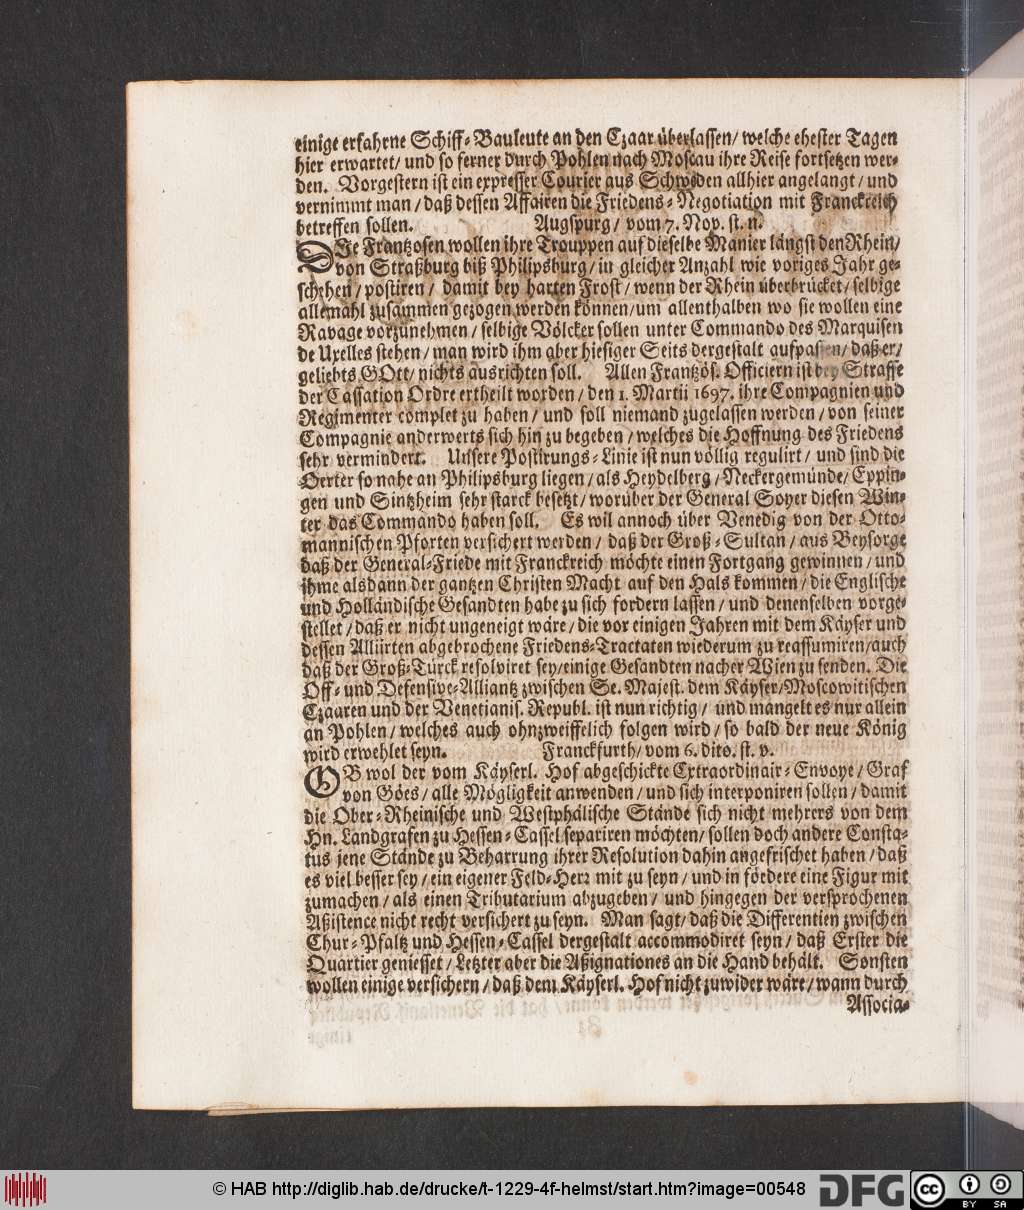 einige erfahrne Schiff-Bauleute an den Czaar überlassen/ welche ehester Tagen
hier erwartet/ und so ferner durch Pohlen nach Moscau ihre Reise fortsetzen wer-
den. Vorgestern ist ein expresser Courier aus Schweden allhier angelangt/ und
vernimmt man/ daß dessen Affairen die Friedens-Negotiation mit Franckreich
betreffen sollen. Augspurg/ vom 7. Nov. st. n.
DIe Frantzosen wollen ihre Trouppen auf dieselbe Manier längst den Rhein/
von Straßburg biß Philipsburg/ in gleicher Anzahl wie voriges Jahr ge-
schehen/ postiren/ damit bey harten Frost/ wenn der Rhein überbrücket/ selbige
allemahl zusammen gezogen werden können/ um allenthalben wo sie wollen eine
Ravage vorzunehmen/ selbige Völcker sollen unter Commando des Marquisen
de Uxelles stehen/ man wird ihm aber hiesiger Seits dergestalt aufpassen/ daß er/
geliebts GOtt/ nichts ausrichten soll. Allen Frantzös. Officiern ist bey Straffe
der Cassation Ordre ertheilt worden/ den 1. Martii 1697. ihre Compagnien und
Regimenter complet zu haben/ und soll niemand zugelassen werden/ von seiner
Compagnie anderwerts sich hin zu begeben/ welches die Hoffnung des Friedens
sehr vermindert. Unsere Postirungs-Linie ist nun völlig regulirt/ und sind die
Oerter so nahe an Philipsburg liegen/ als Heydelberg/ Neckergemünde/ Eppin-
gen und Sintzheim sehr starck besetzt/ worüber der General Soyer diesen Win-
ter das Commando haben soll. Es wil annoch über Venedig von der Otto-
mannischen Pforten versichert werden/ daß der Groß-Sultan/ aus Beysorge
daß der General-Friede mit Franckreich möchte einen Fortgang gewinnen/ und
ihme alsdann der gantzen Christen Macht auf den Hals kommen/ die Englische
und Holländische Gesandten habe zu sich fordern lassen/ und denenselben vorge-
stellet/ daß er nicht ungeneigt wäre/ die vor einigen Jahren mit dem Käyser und
dessen Alliirten abgebrochene Friedens-Tractaten wiederum zu reassumiren/ auch
daß der Groß-Türck resolviret sey/ einige Gesandten nacher Wien zu senden. Die
Off- und Defensive-Alliantz zwischen Se. Majest. dem Käyser/ Moscowitischen
Czaaren und der Venetianis. Republ. ist nun richtig/ und mangelt es nur allein
an Pohlen/ welches auch ohnzweiffelich folgen wird/ so bald der neue König
wird erwehlet seyn. Franckfurth/ vom 6. dito. st. v.
OB wol der vom Käyserl. Hof abgeschickte Extraordinair-Envoye/ Graf
von Göes/ alle Mögligkeit anwenden/ und sich interponiren sollen/ damit
die Ober-Rheinische und Westphälische Stände sich nicht mehrers von dem
Hn. Landgrafen zu Hessen-Cassel separiren möchten/ sollen doch andere Consta-
tus jene Stände zu Beharrung ihrer Resolution dahin angefrischet haben/ daß
es viel besser sey/ ein eigener Feld-Herr mit zu seyn/ und in fördere eine Figur mit
zumachen/ als einen Tributarium abzugeben/ und hingegen der versprochenen
Aßistence nicht recht versichert zu seyn. Man sagt/ daß die Differentien zwischen
Chur-Pfaltz und Hessen-Cassel dergestalt accommodiret seyn/ daß Erster die
Quartier geniesset/ Letzter aber die Aßignationes an die Hand behält. Sonsten
wollen einige versichern/ daß dem Käyserl. Hof nicht zuwider wäre/ wann durch
Associa-
© HAB http://diglib.hab.de/drucke/t-1229-4f-helmst/start.htm?image=00548
DFG
cc BY SA